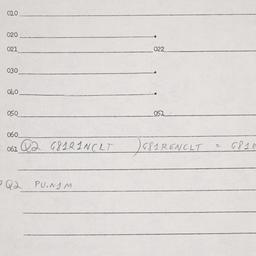 010
020
021 022
030
040
050 051
060
061 Q2 G81R1NCLT )G81RENCLT = G81
Q2 PU.N1M